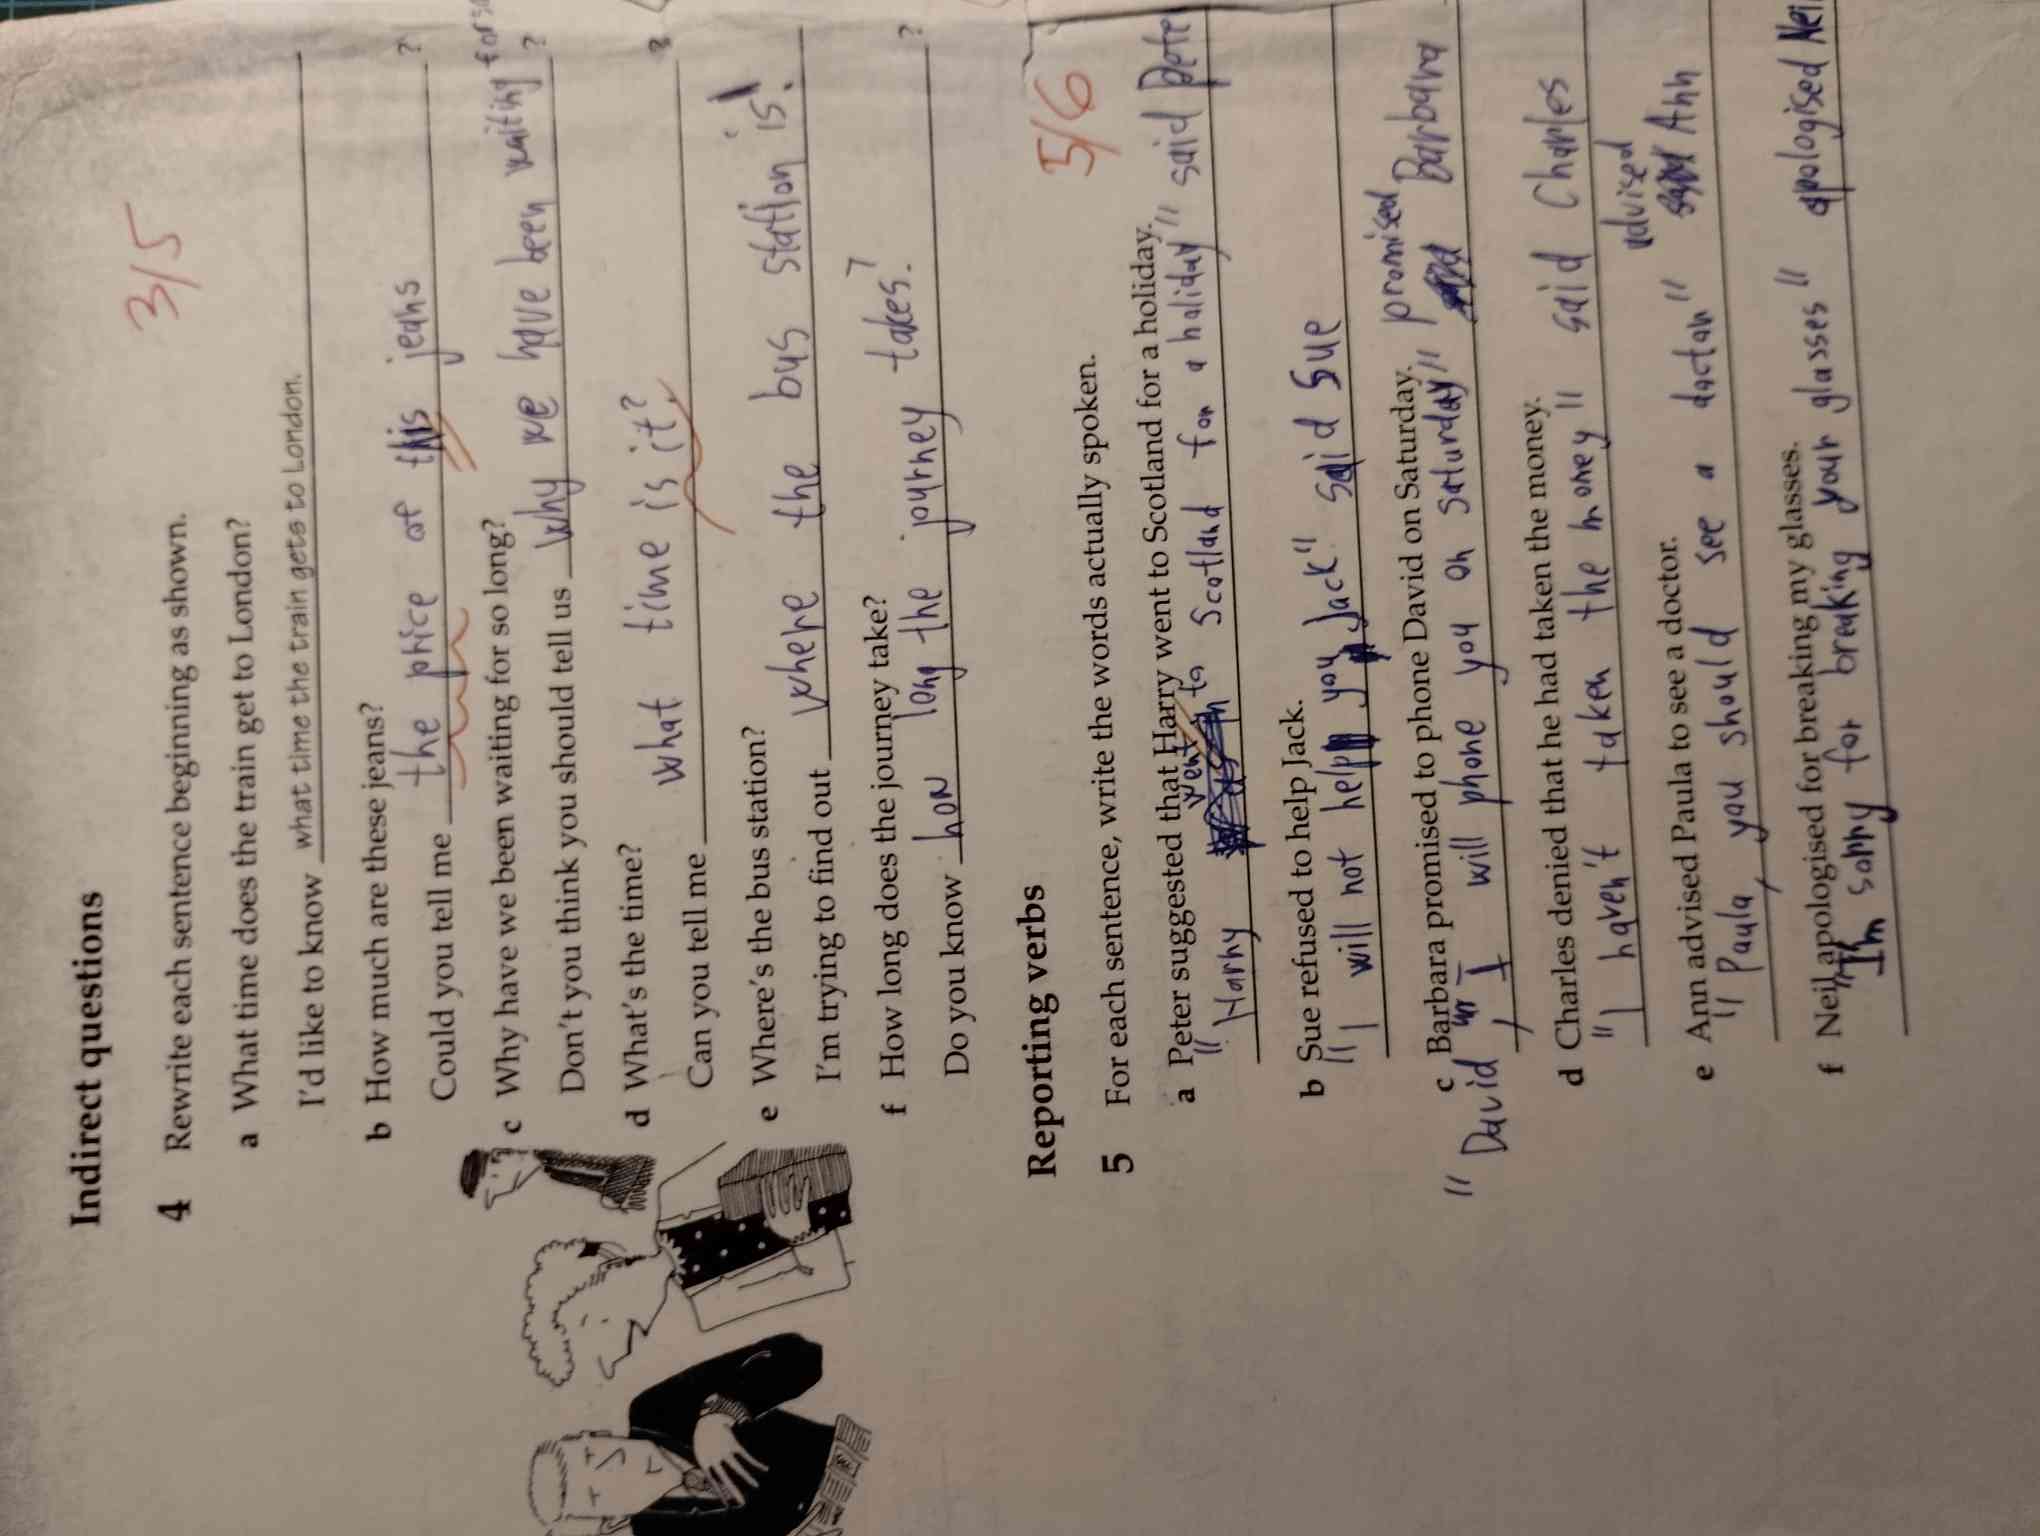 Indirect questions
3/5
4 Rewrite each sentence beginning as shown.
a What time does the train get to London?
I'd like to know what time the train gets to London.
b How much are these jeans?
Could you tell me the price of this jeans ?
c Why have we been waiting for so long?
Don't you think you should tell us why we have been waiting for so ?
d What's the time?
Can you tell me what time is it? ?
e Where's the bus station?
I'm trying to find out where the bus station is!
f How long does the journey take?
Do you know how long the journey takes? ?
Reporting verbs
5/6
5 For each sentence, write the words actually spoken.
a Peter suggested that Harry went to Scotland for a holiday.
"Harry went to Scotland for a holiday" said Pete
b Sue refused to help Jack.
"I will not help you Jack" said Sue
c Barbara promised to phone David on Saturday.
"David, I will phone you on Saturday" promised Barbara
d Charles denied that he had taken the money.
"I haven't taken the money" said Charles
e Ann advised Paula to see a doctor.
"Paula, you should see a doctor" advised Ann
f Neil apologised for breaking my glasses.
"I'm sorry for breaking your glasses" apologised Nei